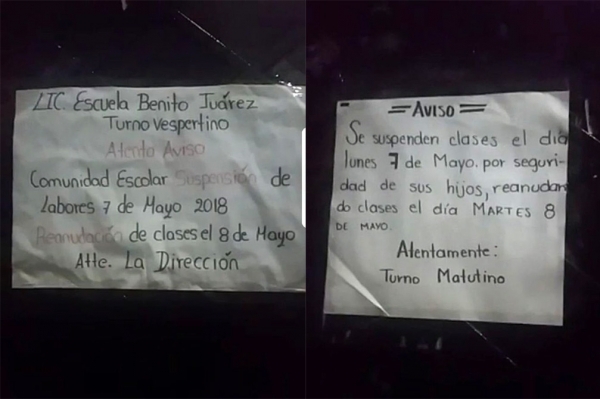 LIC. Escuela Benito Juárez
Turno Vespertino
Atento Aviso
Comunidad Escolar Suspensión de
Labores 7 de Mayo 2018
Reanudación de clases el 8 de Mayo
Atte. La Dirección
= AVISO =
Se suspenden clases el día
lunes 7 de Mayo. por seguri-
dad de sus hijos, reanudan
do clases el día MARTES 8
DE MAYO.
Atentamente:
Turno Matutino